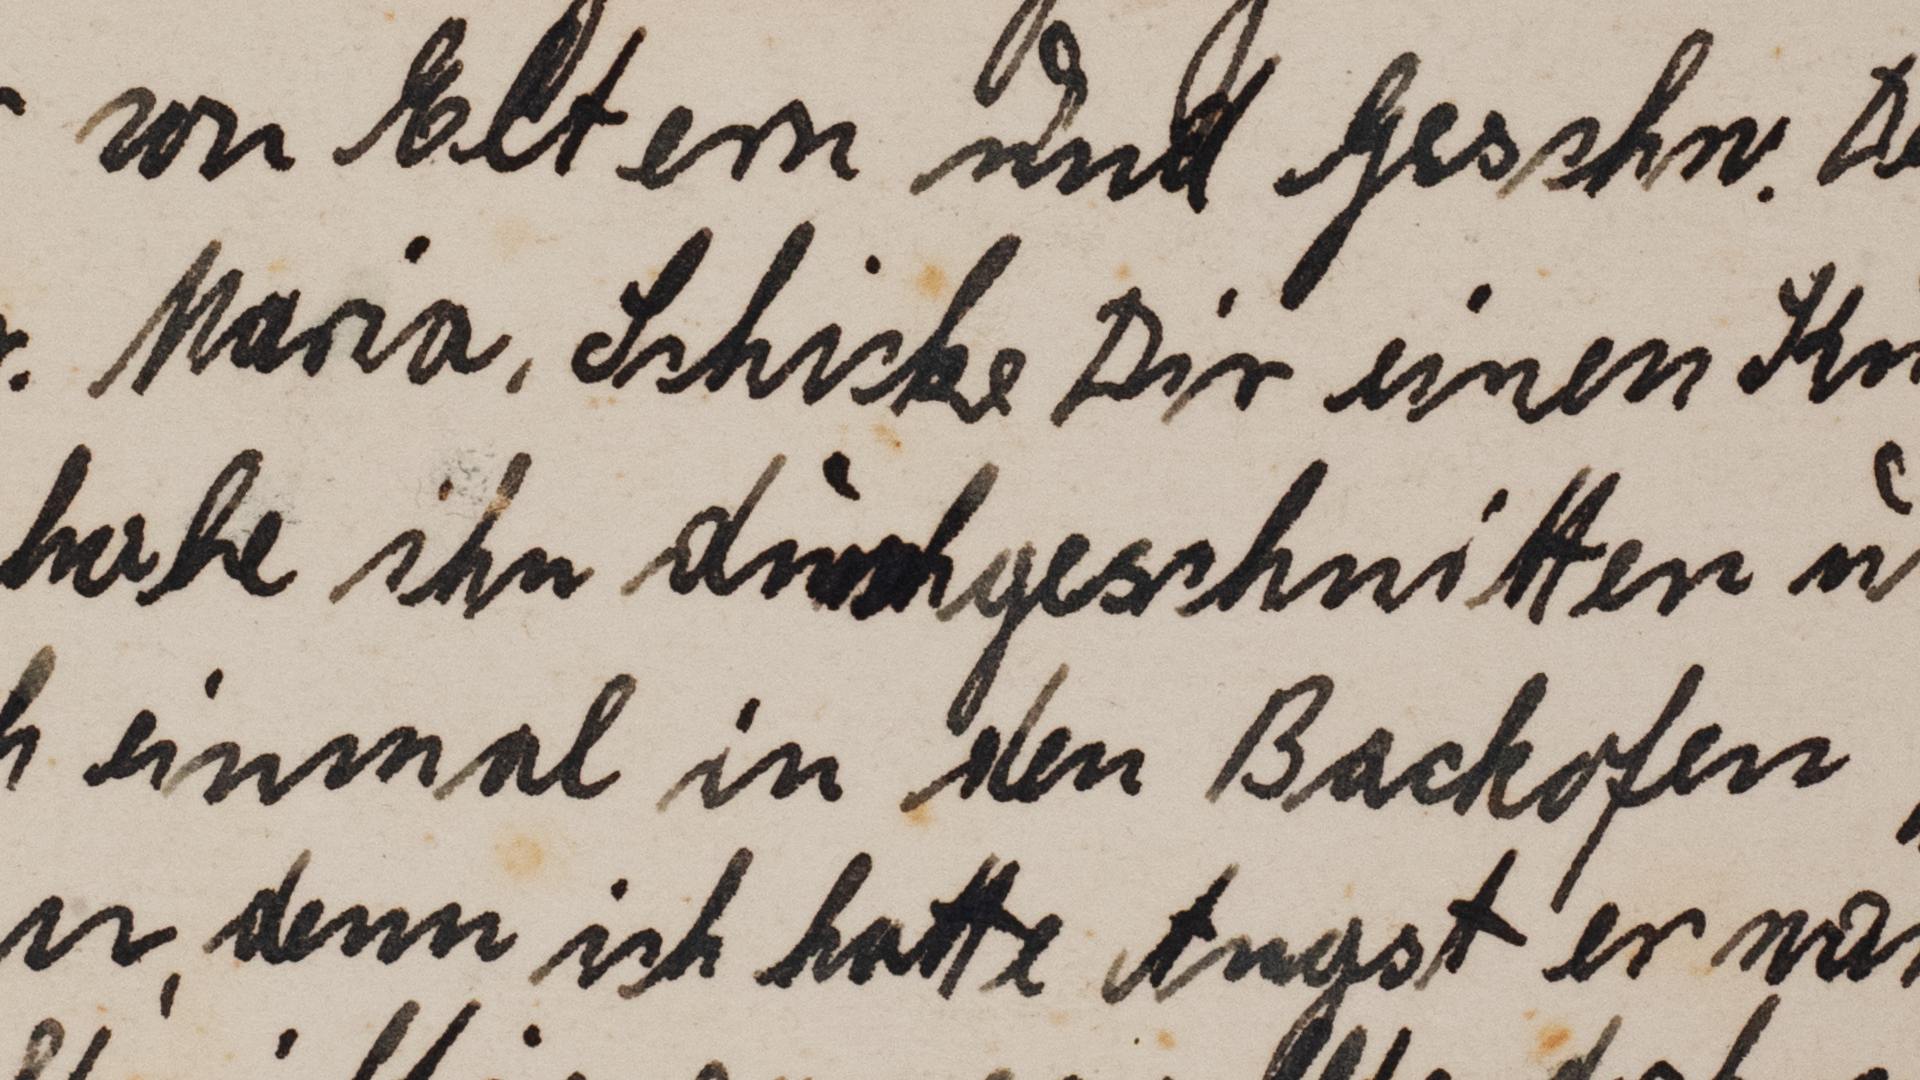 von Eltern und Geschw.
Maria, Schicke Dir einen
habe ihn durchgeschnitten
einmal in den Backofen
denn ich hatte Angst er